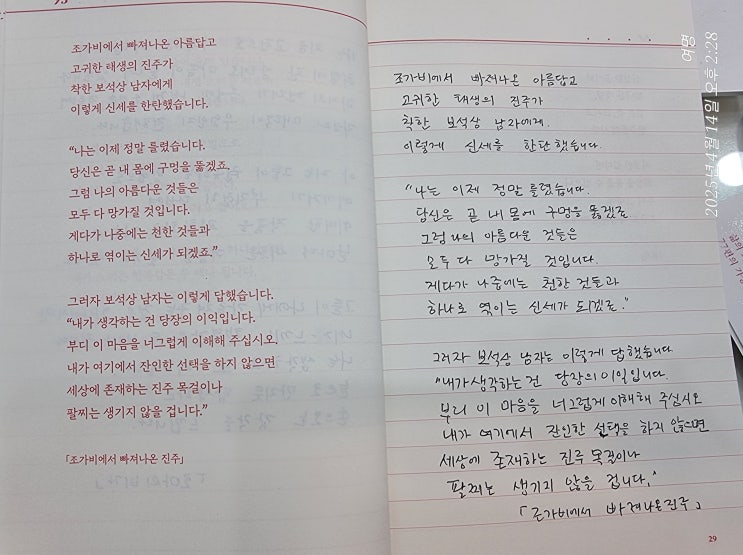 조가비에서 빠져나온 아름답고
고귀한 태생의 진주가
착한 보석상 남자에게
이렇게 신세를 한탄했습니다.
“나는 이제 정말 틀렸습니다.
당신은 곧 내 몸에 구멍을 뚫겠죠.
그럼 나의 아름다운 것들은
모두 다 망가질 것입니다.
게다가 나중에는 천한 것들과
하나로 엮이는 신세가 되겠죠.”
그러자 보석상 남자는 이렇게 답했습니다.
“내가 생각하는 건 당장의 이익입니다.
부디 이 마음을 너그럽게 이해해 주십시오.
내가 여기에서 잔인한 선택을 하지 않으면
세상에 존재하는 진주 목걸이나
팔찌는 생기지 않을 겁니다.”
「조가비에서 빠져나온 진주」
조가비에서 빠져나온 아름답고
고귀한 태생의 진주가
착한 보석상 남자에게.
이렇게 신세를 한탄했습니다.
“나는 이제 정말 틀렸습니다.
당신은 곧 내 몸에 구멍을 뚫겠죠
그럼 나의 아름다운 것들은
모두 다 망가질 것입니다.
게다가 나중에는 천한 것들과
하나로 엮이는 신세가 되겠죠."
그러자 보석상 남자는 이렇게 답했습니다
"내가 생각하는 건 당장의 이익입니다.
부디 이 마음을 너그럽게 이해해 주십시오
내가 여기에서 잔인한 선택을 하지 않으면
세상에 존재하는 진주 목걸이나
팔찌는 생기지 않을 겁니다."
「조가비에서 빠져나온 진주」
29
여명
2025년 4월 14일 오후 2:28